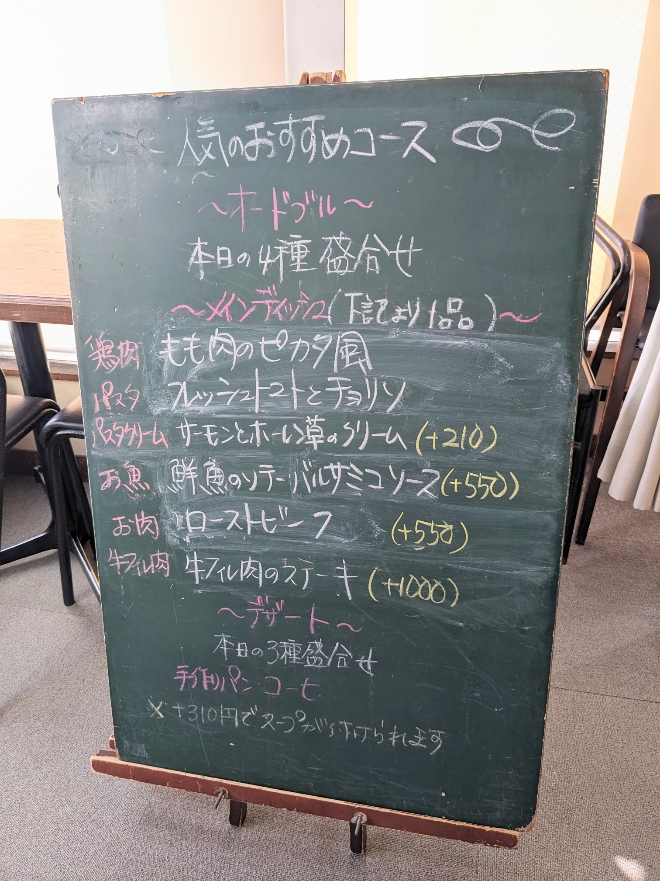 人気のおすすめコース
〜オードブル〜
本日の4種盛合せ
〜メインディッシュ(下記より1品)〜
鶏肉 もも肉のピカタ風
パスタ フレッシュトマトとチョリソ
パスタクリーム サーモンとホーレン草のクリーム (+210)
お魚 鮮魚のソテーバルサミコソース(+550)
お肉 ローストビーフ (+550)
牛フィレ肉 牛フィレ肉のステーキ (+1000)
〜デザート〜
本日の3種盛合せ
手作りパン コーヒ
※+310円でスープが付けられます